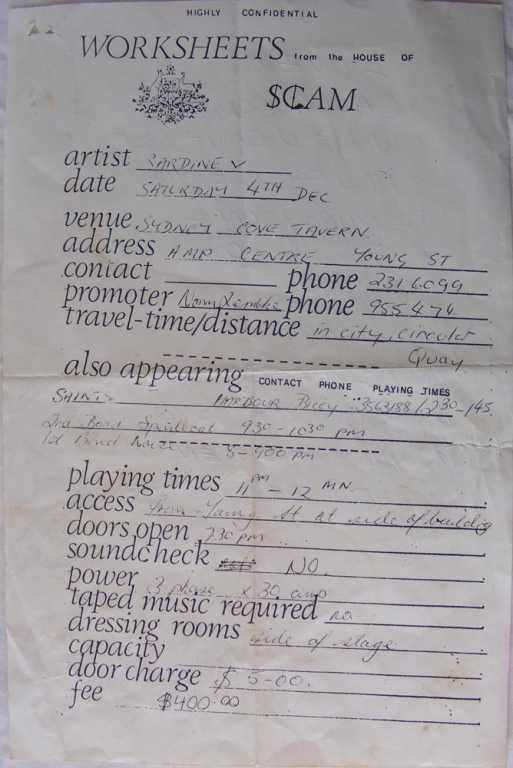 HIGHLY CONFIDENTIAL
WORKSHEETS from the HOUSE OF
$CAM
artist SARDINE V
date SATURDAY 4TH DEC
venue SYDNEY COVE TAVERN
address AMP CENTRE YOUNG ST
contact phone 231 6099
promoter phone 955 474
travel-time/distance in city, circular
Quay
also appearing CONTACT PHONE PLAYING TIMES
SAINTS HARBOUR 3563158 1230-145
2nd Band Speedboat 930-1030 pm
1st Band Noise 8-900 pm
playing times 11 PM - 12 MN
access from Young St at side of building
doors open 730 pm
soundcheck NO.
power 3 phase x 30 amp
taped music required no
dressing rooms side of stage
capacity
door charge $ 5-00.
fee $400.00